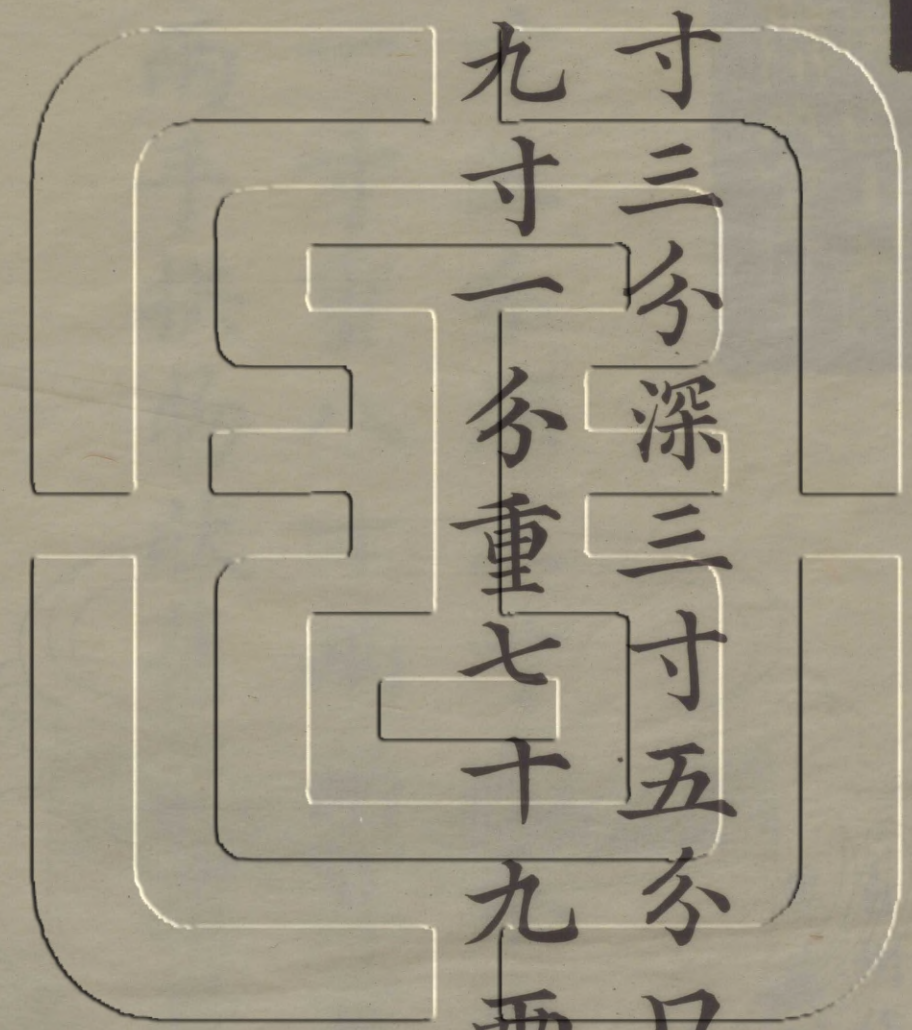 寸三分深三寸五分口
九寸一分重七十九兩